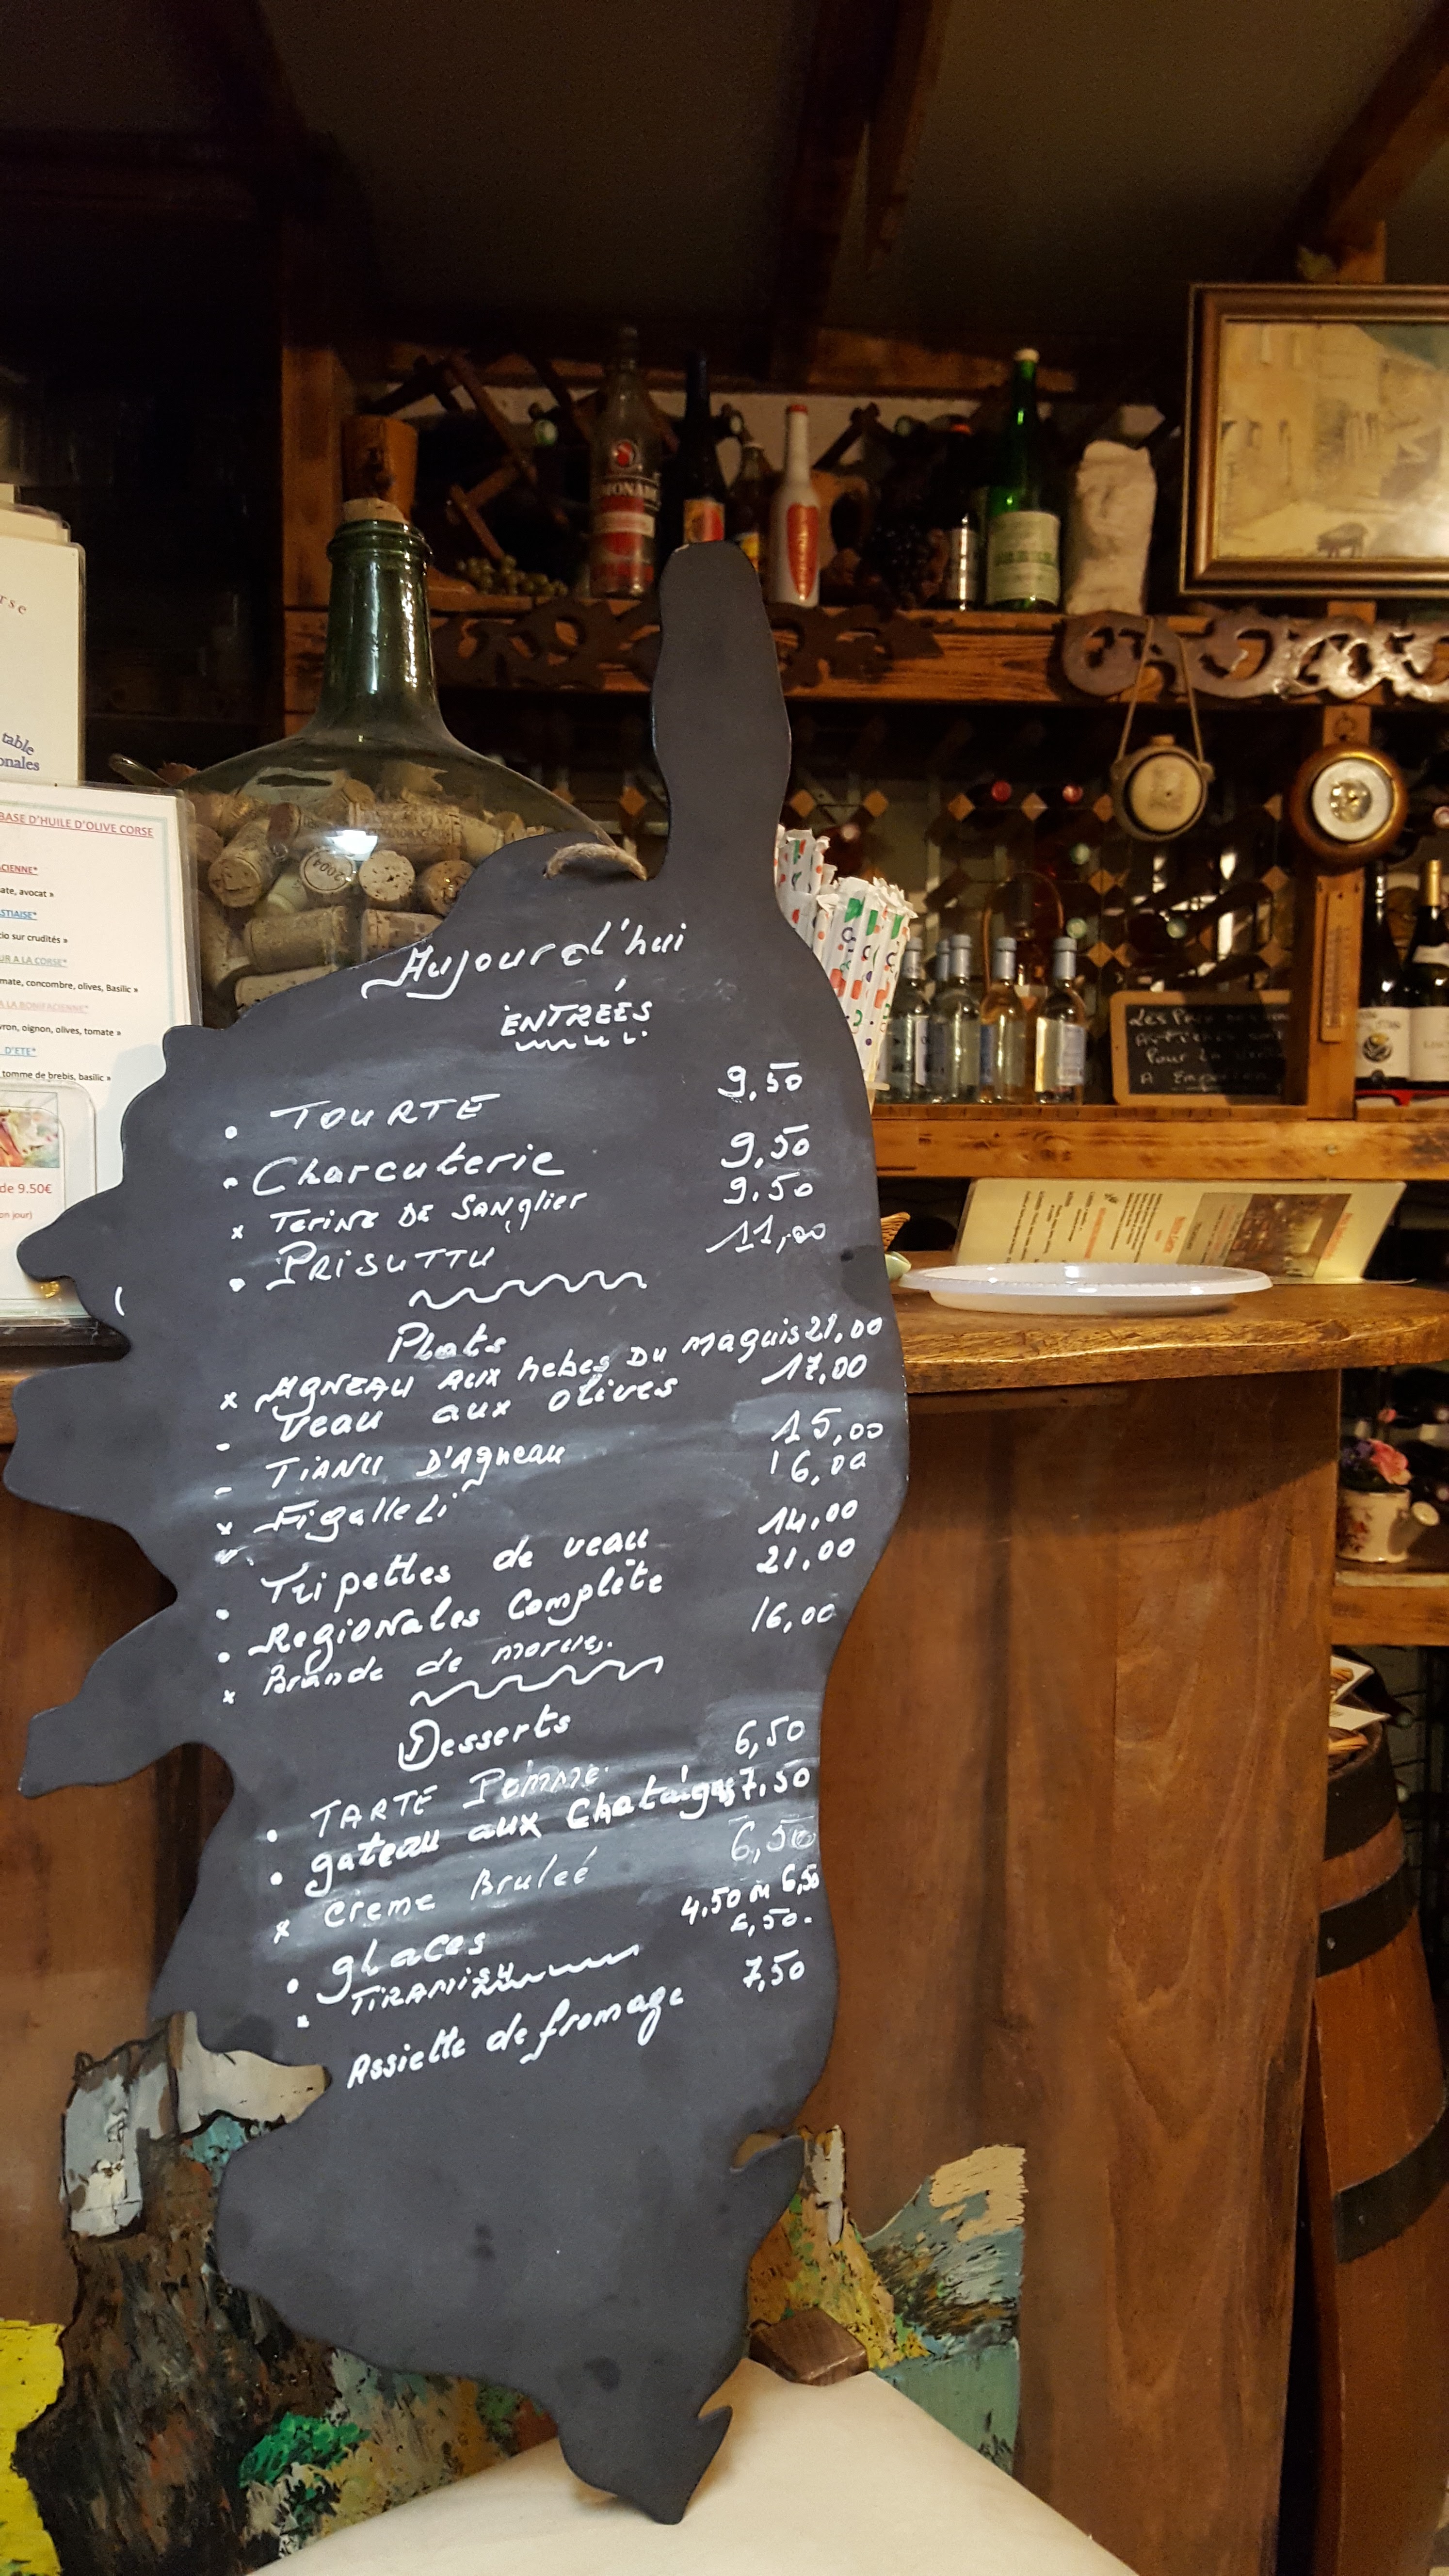 Aujourd'hui
ENTREÉS
• TOURTE 9,50
• Charcuterie 9,50
x Terine DE Sanglier 9.50
• PRISUTTU 11,00
Plats
x AGNEAU AUX hebes DU maquis 21,00
- Veau aux olives 17,00
- TIANU D'Agneau 15,00
x Figatelli 16,00
• Tripettes de veau 14,00
• Regionales Complète 21,00
x Brande de morue. 16,00
Desserts
• TARTE Pomme 6,50
• gateau aux Chataignes 7.50
x Creme Bruleé 6,50
• glaces 4.50 ou 6,50
• TIRAMISU 6,50.
Assiette de fromage 7,50
rse
table
onales
BASE D'HUILE D'OLIVE CORSE
CIENNE*
ate, avocat »
STIAISE*
cio sur crudités »
UR A LA CORSE*
mate, concombre, olives, Basilic »
A LA BONIFACIENNE*
vron, oignon, olives, tomate »
D'ETE*
tomme de brebis, basilic »
de 9.50€
on jour)
2004
MONAD
Les
Pour La
A Emporter